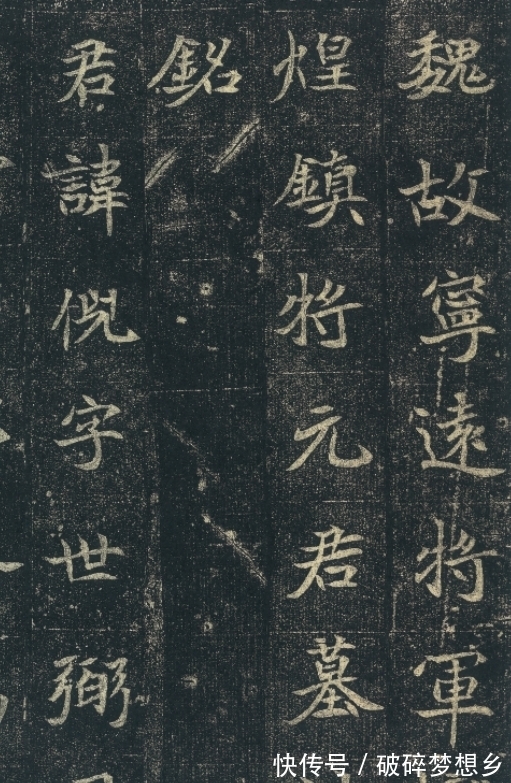 魏故寧遠将軍
煌鎮将元君墓
銘
君諱倪字世弼
快传号 / 破碎梦想乡